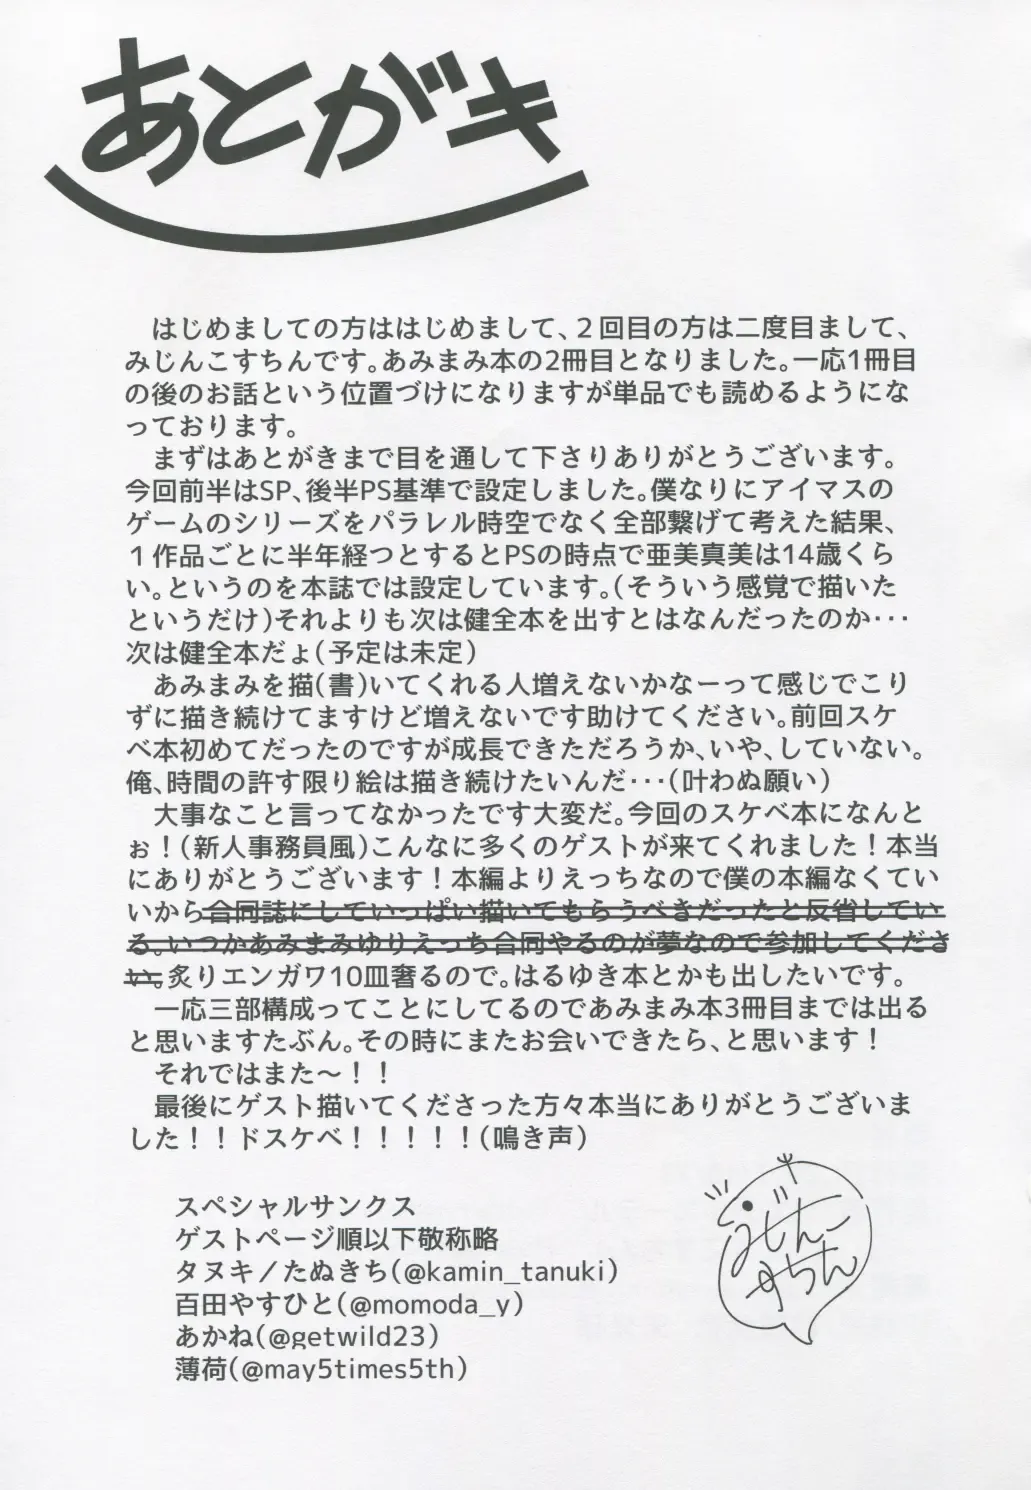 あとがキ
はじめましての方ははじめまして、２回目の方は二度目まして、
みじんこすちんです。あみまみ本の2冊目となりました。一応1冊目
の後のお話という位置づけになりますが単品でも読めるようにな
っております。
まずはあとがきまで目を通して下さりありがとうございます。
今回前半はSP、後半PS基準で設定しました。僕なりにアイマスの
ゲームのシリーズをパラレル時空でなく全部繋げて考えた結果、
１作品ごとに半年経つとするとPSの時点で亜美真美は14歳くら
い。というのを本誌では設定しています。(そういう感覚で描いた
というだけ)それよりも次は健全本を出すとはなんだったのか･･･
次は健全本だょ(予定は未定)
あみまみを描(書)いてくれる人増えないかなーって感じでこり
ずに描き続けてますけど増えないです助けてください。前回スケ
ベ本初めてだったのですが成長できただろうか、いや、していない。
俺、時間の許す限り絵は描き続けたいんだ･･･(叶わぬ願い)
大事なこと言ってなかったです大変だ。今回のスケベ本になんと
ぉ！(新人事務員風)こんなに多くのゲストが来てくれました！本当
にありがとうございます！本編よりえっちなので僕の本編なくてい
いから合同誌にしていっぱい描いてもらうべきだったと反省してい
る。いつかあみまみゆりえっち合同やるのが夢なので参加してくださ
い。炙りエンガワ10皿奢るので。はるゆき本とかも出したいです。
一応三部構成ってことにしてるのであみまみ本3冊目までは出る
と思いますたぶん。その時にまたお会いできたら、と思います！
それではまた～！！
最後にゲスト描いてくださった方々本当にありがとうございま
した！！ドスケベ！！！！！(鳴き声)
スペシャルサンクス
ゲストページ順以下敬称略
タヌキ／たぬきち(@kamin_tanuki)
百田やすひと(@momoda_y)
あかね(@getwild23)
薄荷(@may5times5th)
みじんこ
すちん